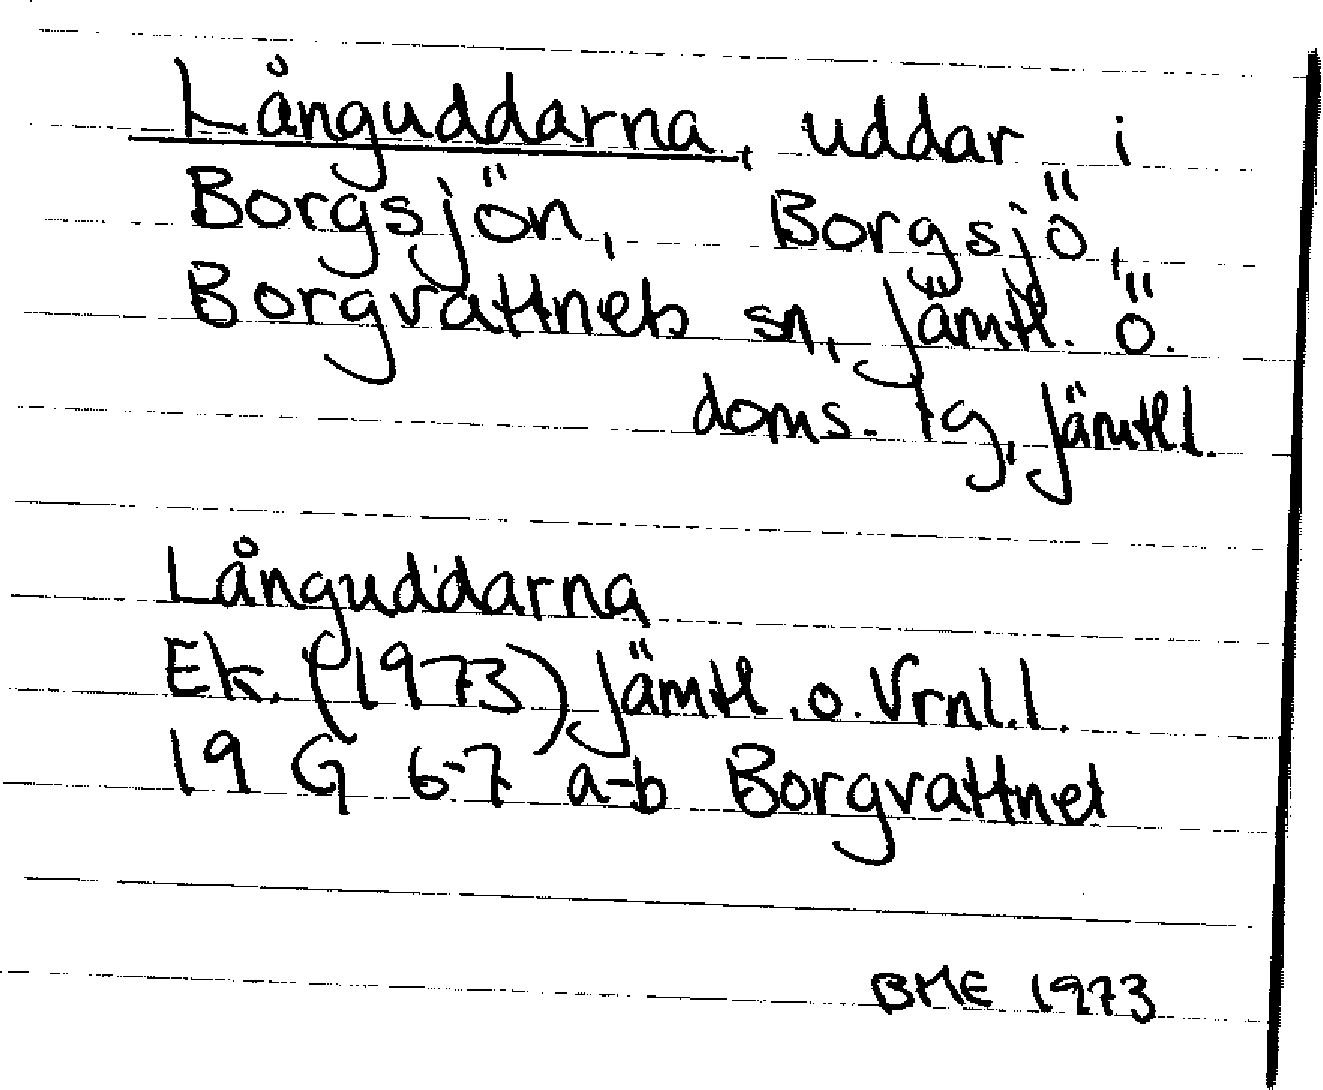 Långuddarna, uddar i
Borgsjön, Borgsjö,
Borgvattnets sn, Jämtl. ö.
doms. tg, Jämtl.
Långuddarna
Ek. (1973) Jämtl. o. Vrnl.l.
19 G 6-7 a-b Borgvattnet
BME 1973